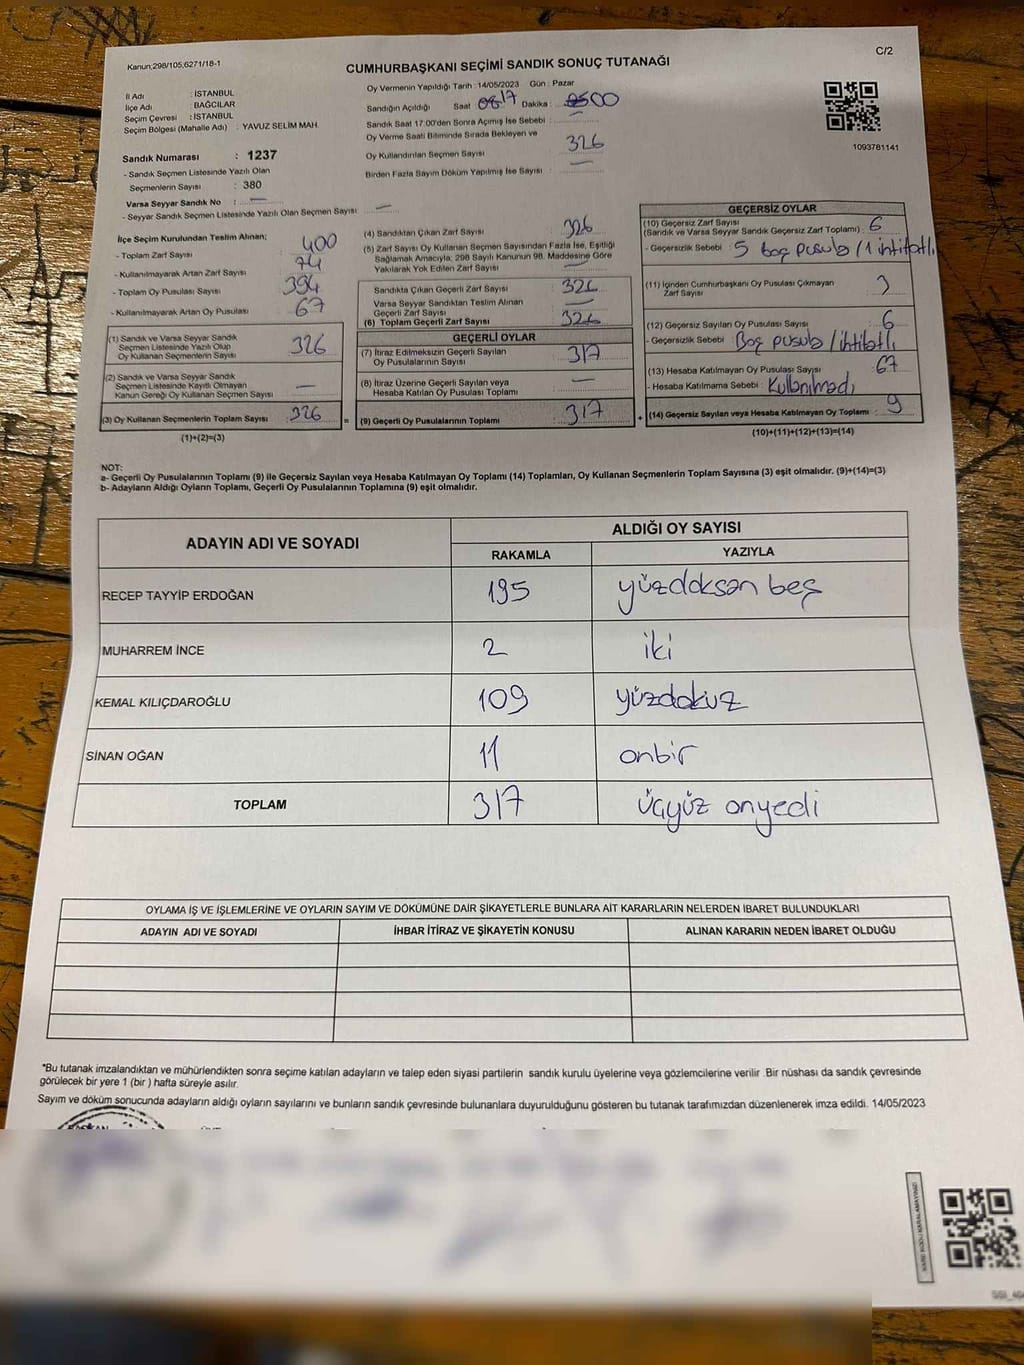 Kanun;298/105,6271/18-1
C/2
CUMHURBAŞKANI SEÇİMİ SANDIK SONUÇ TUTANAĞI
İl Adı : İSTANBUL
İlçe Adı : BAĞCILAR
Seçim Çevresi : İSTANBUL
Seçim Bölgesi (Mahalle Adı) : YAVUZ SELİM MAH.
Sandık Numarası : 1237
- Sandık Seçmen Listesinde Yazılı Olan
Seçmenlerin Sayısı : 380
Varsa Seyyar Sandık No : —
- Seyyar Sandık Seçmen Listesinde Yazılı Olan Seçmen Sayısı: —
Oy Vermenin Yapıldığı Tarih : 14/05/2023 Gün : Pazar
Sandığın Açıldığı Saat Dakika :
Sandık Saat 17:00'den Sonra Açımış İse Sebebi : —
Oy Verme Saati Bitiminde Sırada Bekleyen ve
Oy Kullandırılan Seçmen Sayısı : 326
Birden Fazla Sayım Döküm Yapılmış İse Sayısı : —
1093781141
İlçe Seçim Kurulundan Teslim Alınan;
- Toplam Zarf Sayısı : 400
- Kullanılmayarak Artan Zarf Sayısı : 74
- Toplam Oy Pusulası Sayısı : 394
- Kullanılmayarak Artan Oy Pusulası : 67
(1) Sandık ve Varsa Seyyar Sandık
Seçmen Listesinde Yazılı Olup
Oy Kullanan Seçmenlerin Sayısı : 326
(2) Sandık ve Varsa Seyyar Sandık
Seçmen Listesinde Kayıtlı Olmayan
Kanun Gereği Oy Kullanan Seçmen Sayısı : —
(3) Oy Kullanan Seçmenlerin Toplam Sayısı : 326
(1)+(2)=(3)
(4) Sandıktan Çıkan Zarf Sayısı : 326
(5) Zarf Sayısı Oy Kullanan Seçmen Sayısından Fazla İse, Eşitliği
Sağlamak Amacıyla, 298 Sayılı Kanunun 98. Maddesine Göre
Yakılarak Yok Edilen Zarf Sayısı : —
Sandıkta Çıkan Geçerli Zarf Sayısı : 326
Varsa Seyyar Sandıktan Teslim Alınan
Geçerli Zarf Sayısı : —
(6) Toplam Geçerli Zarf Sayısı : 326
GEÇERLİ OYLAR
(7) İtiraz Edilmeksizin Geçerli Sayılan
Oy Pusulalarının Sayısı : 317
(8) İtiraz Üzerine Geçerli Sayılan veya
Hesaba Katılan Oy Pusulası Toplamı : —
= (9) Geçerli Oy Pusulalarının Toplamı : 317
GEÇERSİZ OYLAR
(10) Geçersiz Zarf Sayısı
(Sandık ve Varsa Seyyar Sandık Geçersiz Zarf Toplamı) : 6
- Geçersizlik Sebebi : 5 boş pusula / 1 ihtilatlı
(11) İçinden Cumhurbaşkanı Oy Pusulası Çıkmayan
Zarf Sayısı : 3
(12) Geçersiz Sayılan Oy Pusulası Sayısı : 6
- Geçersizlik Sebebi : Boş pusula / ihtilatlı
(13) Hesaba Katılmayan Oy Pusulası Sayısı : 67
- Hesaba Katılmama Sebebi : Kullanılmadı
+ (14) Geçersiz Sayılan veya Hesaba Katılmayan Oy Toplamı : 9
(10)+(11)+(12)+(13)=(14)
NOT:
a- Geçerli Oy Pusulalarının Toplamı (9) ile Geçersiz Sayılan veya Hesaba Katılmayan Oy Toplamı (14) Toplamları, Oy Kullanan Seçmenlerin Toplam Sayısına (3) eşit olmalıdır. (9)+(14)=(3)
b- Adayların Aldığı Oyların Toplamı, Geçerli Oy Pusulalarının Toplamına (9) eşit olmalıdır.
ADAYIN ADI VE SOYADI ALDIĞI OY SAYISI
RAKAMLA YAZIYLA
RECEP TAYYİP ERDOĞAN 195 yüzdoksan beş
MUHARREM İNCE 2 iki
KEMAL KILIÇDAROĞLU 109 yüzdokuz
SİNAN OĞAN 11 onbir
TOPLAM 317 üçyüz onyedi
OYLAMA İŞ VE İŞLEMLERİNE VE OYLARIN SAYIM VE DÖKÜMÜNE DAİR ŞİKAYETLERLE BUNLARA AİT KARARLARIN NELERDEN İBARET BULUNDUKLARI
ADAYIN ADI VE SOYADI İHBAR İTİRAZ VE ŞİKAYETİN KONUSU ALINAN KARARIN NEDEN İBARET OLDUĞU
*Bu tutanak imzalandıktan ve mühürlendikten sonra seçime katılan adayların ve talep eden siyasi partilerin sandık kurulu üyelerine veya gözlemcilerine verilir .Bir nüshası da sandık çevresinde
görülecek bir yere 1 (bir ) hafta süreyle asılır.
Sayım ve döküm sonucunda adayların aldığı oyların sayılarını ve bunların sandık çevresinde bulunanlara duyurulduğunu gösteren bu tutanak tarafımızdan düzenlenerek imza edildi. 14/05/2023